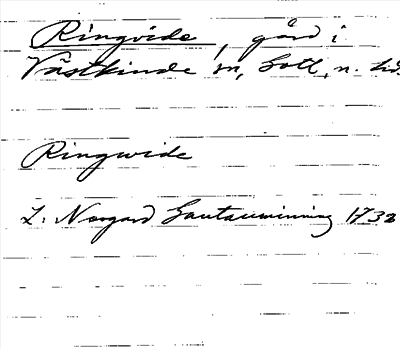 Ringvide, gård i
Västkinde sn, Gotl, n. hä
Ringwide
L. Norgard Gautauminning 1732